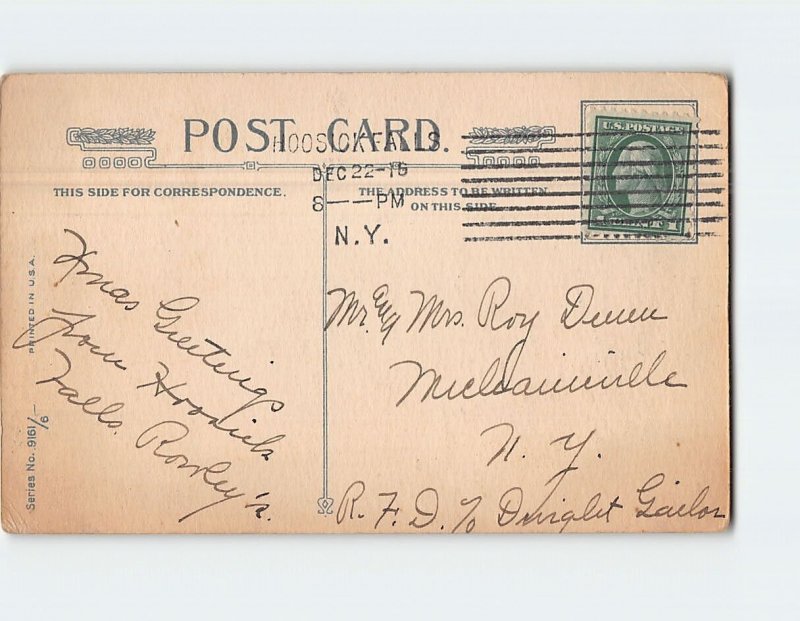 POST CARD.
HOOSICK FALLS.
DEC 22-16
8 — PM
N.Y.
U.S. POSTAGE
THIS SIDE FOR CORRESPONDENCE.
THE ADDRESS TO BE WRITTEN
ON THIS SIDE
Xmas Greetings
from Hoosick
Falls. Rowley's.
Mr. and Mrs. Roy Dunn
Mechanicville
N. Y.
R. F. D. % Dwight Gailor
PRINTED IN U.S.A.
Series No. 9161/-
/6